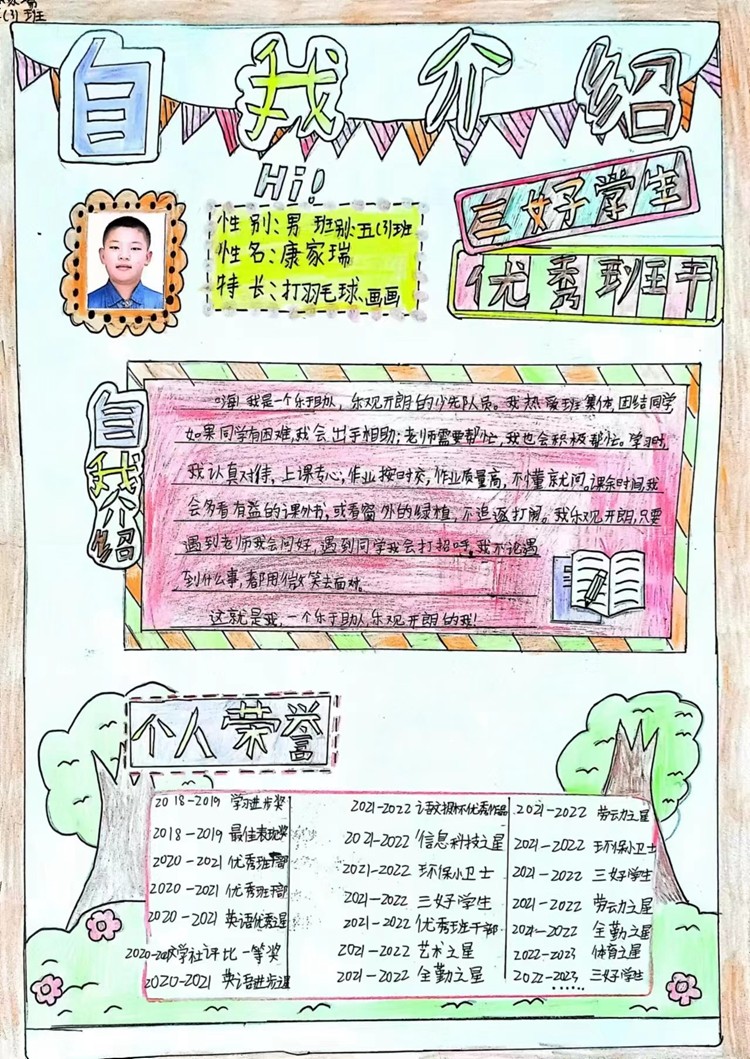 (3)班
自我介绍
Hi!
性别:男 班别:五(3)班
性名:康家瑞
特长:打羽毛球、画画
三好学生
优秀班干
自我介绍
嗨!我是一个乐于助人,乐观开朗的少先队员。我热爱班集体,团结同学
如果同学有困难,我会出手相助;老师需要帮忙,我也会积极帮忙。学习时,
我认真对待,上课专心,作业按时交,作业质量高,不懂就问。课余时间,我
会多看有益的课外书,或看窗外的绿植,不追逐打闹。我乐观开朗,只要
遇到老师我会问好,遇到同学我会打招呼。我不论遇
到什么事,都用微笑去面对。
这就是我,一个乐于助人,乐观开朗的我!
个人荣誉
2018-2019 学习进步奖
2018-2019 最佳表现奖
2020-2021 优秀班干部
2020-2021 优秀班干部
2020-2021 英语优秀星
2020-2021文学社评比一等奖
2020-2021 英语进步星
2021-2022 语文报杯优秀作品
2021-2022 信息科技之星
2021-2022 环保小卫士
2021-2022 三好学生
2021-2022 优秀班干部
2021-2022 艺术之星
2021-2022 全勤之星
2021-2022 劳动力之星
2021-2022 环保小卫士
2021-2022 三好学生
2021-2022 劳动力之星
2021-2022 全勤之星
2022-2023 体育之星
2022-2023 三好学生
……